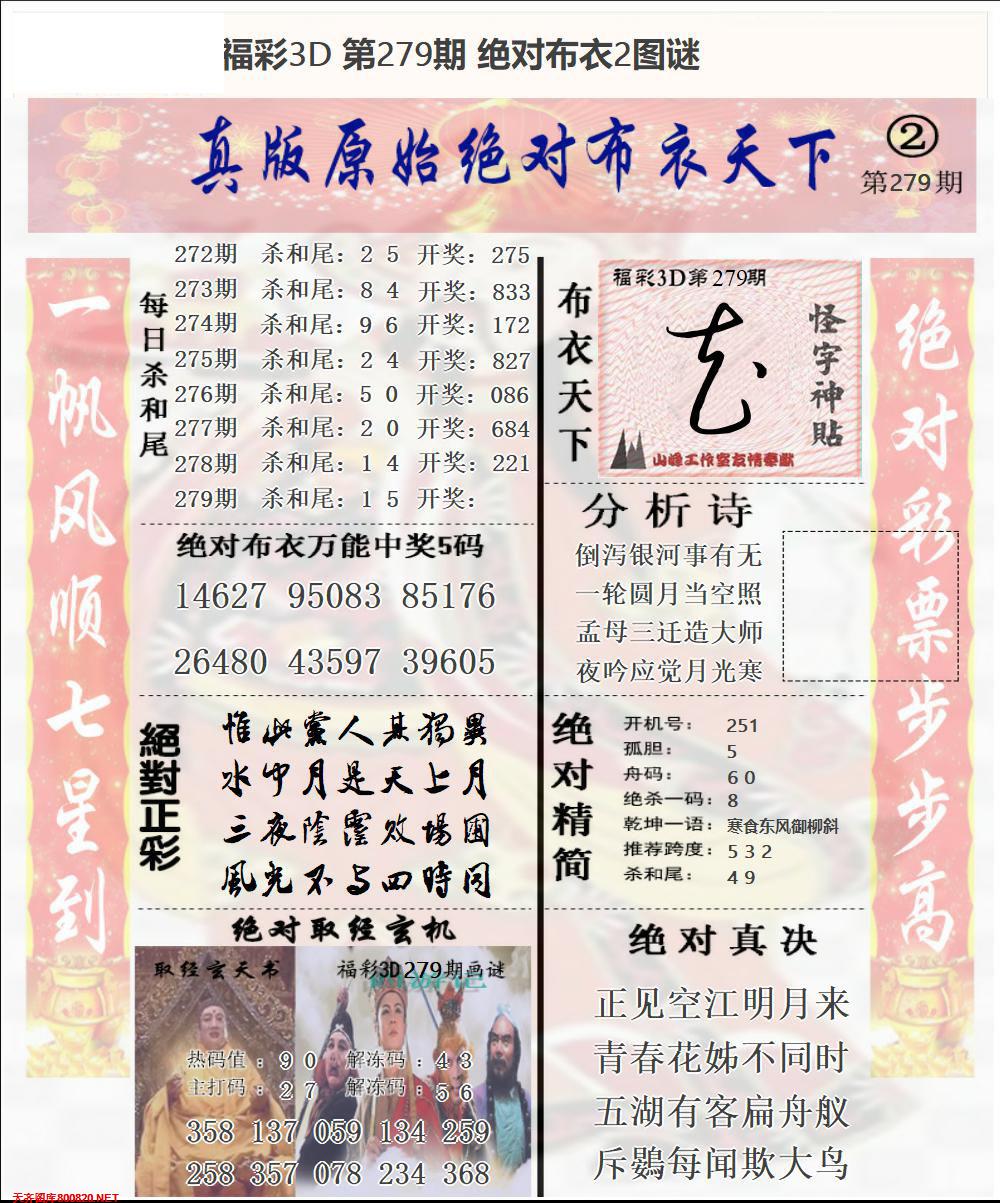 福彩3D 第279期 绝对布衣2图谜
真版原始绝对布衣天下
②
第279期
一帆风顺七星到
每日杀和尾
272期 杀和尾：2 5 开奖：275
273期 杀和尾：8 4 开奖：833
274期 杀和尾：9 6 开奖：172
275期 杀和尾：2 4 开奖：827
276期 杀和尾：5 0 开奖：086
277期 杀和尾：2 0 开奖：684
278期 杀和尾：1 4 开奖：221
279期 杀和尾：1 5 开奖：
绝对布衣万能中奖5码
14627 95083 85176
26480 43597 39605
絕對正彩
惟此黨人其獨異
水中月是天上月
三夜陰霪败場圃
風光不与四時同
绝对取经玄机
取经玄天书
福彩3D279期画谜
热码值：9 0 解冻码：4 3
主打码：2 7 解冻码：5 6
358 137 059 134 259
258 357 078 234 368
布衣天下
福彩3D第279期
怪字神貼
山峰工作室友情奉献
分析诗
倒泻银河事有无
一轮圆月当空照
孟母三迁造大师
夜吟应觉月光寒
绝对精简
开机号：251
孤胆：5
舟码：6 0
绝杀一码：8
乾坤一语：寒食东风御柳斜
推荐跨度：5 3 2
杀和尾：4 9
绝对真决
正见空江明月来
青春花姊不同时
五湖有客扁舟舣
斥鷃每闻欺大鸟
绝对彩票步步高
天齐图库800820.NET